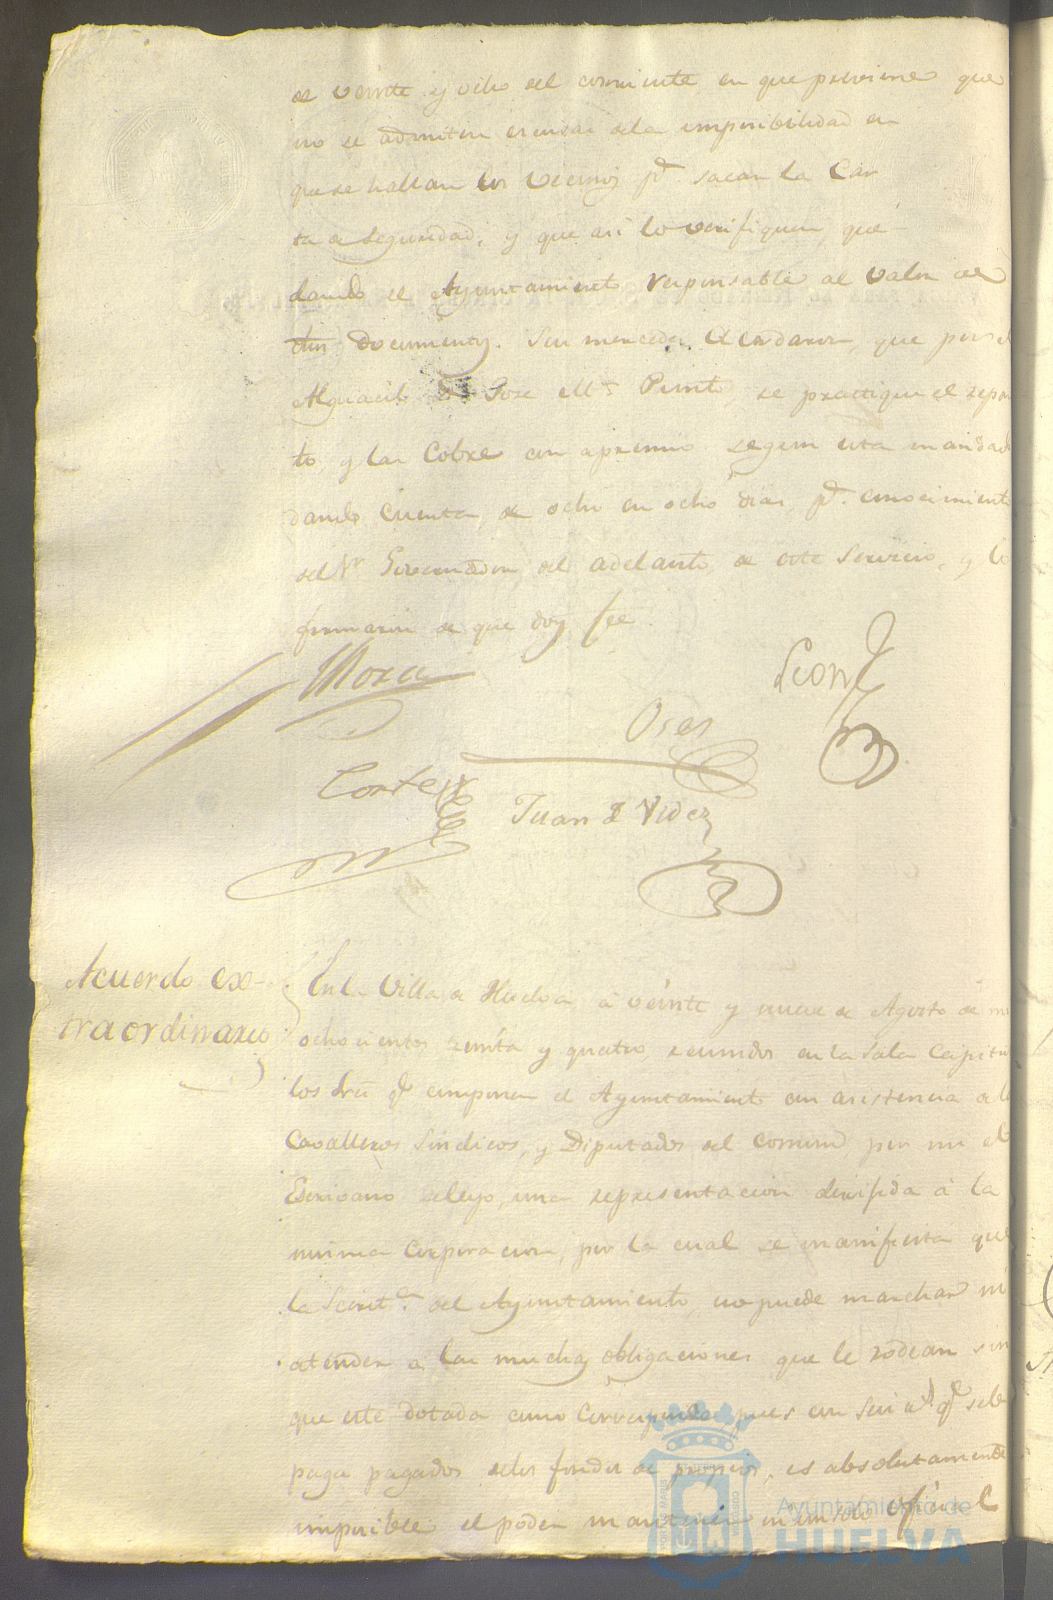 de veinte y ocho del corriente en que previene que
no se admiten escusas dela imposibilidad en
que se hallan los vecinos pª. sacar la Car
ta de seguridad, y que asi lo verifiquen, que-
dando el Ayuntamiento responsable al valor de
dhos documentos. Sus mercedes acordaron, que por el
Alguacil D. Jose Mª. Pinto, se practique el repar
to, y las cobre con apremio segun esta mandado
dando cuenta, de ocho en ocho dias, pª. conocimiento
del Sr Governador, del adelanto de este servicio, y lo
firmaron de que doy fee.
Mora
Leon
Oses
Cortes
Juan Videz
Acuerdo ex-
traordinario
En la Villa de Huelva á veinte y nueve de Agosto de mil
ochocientos treinta y quatro, reunidos en la Sala Capitu
los Sres qe componen el Ayuntamiento con asistencia de los
Cavalleros Sindicos, y Diputados del comun, por mi el
Escrivano seleyo una representacion dirijida á la
misma Corporacion, por la cual se manifiesta que
la Secretª. del Ayuntamiento, no puede marchar ni
atender á las muchas obligaciones que le rodean sin
que esté dotada como corresponde, pues con seis rs. qe sele
paga pagados delos fondos de propios, es absolutamente
imposible el poder mantener ni un solo oficial
Ayuntamiento de
HUELVA